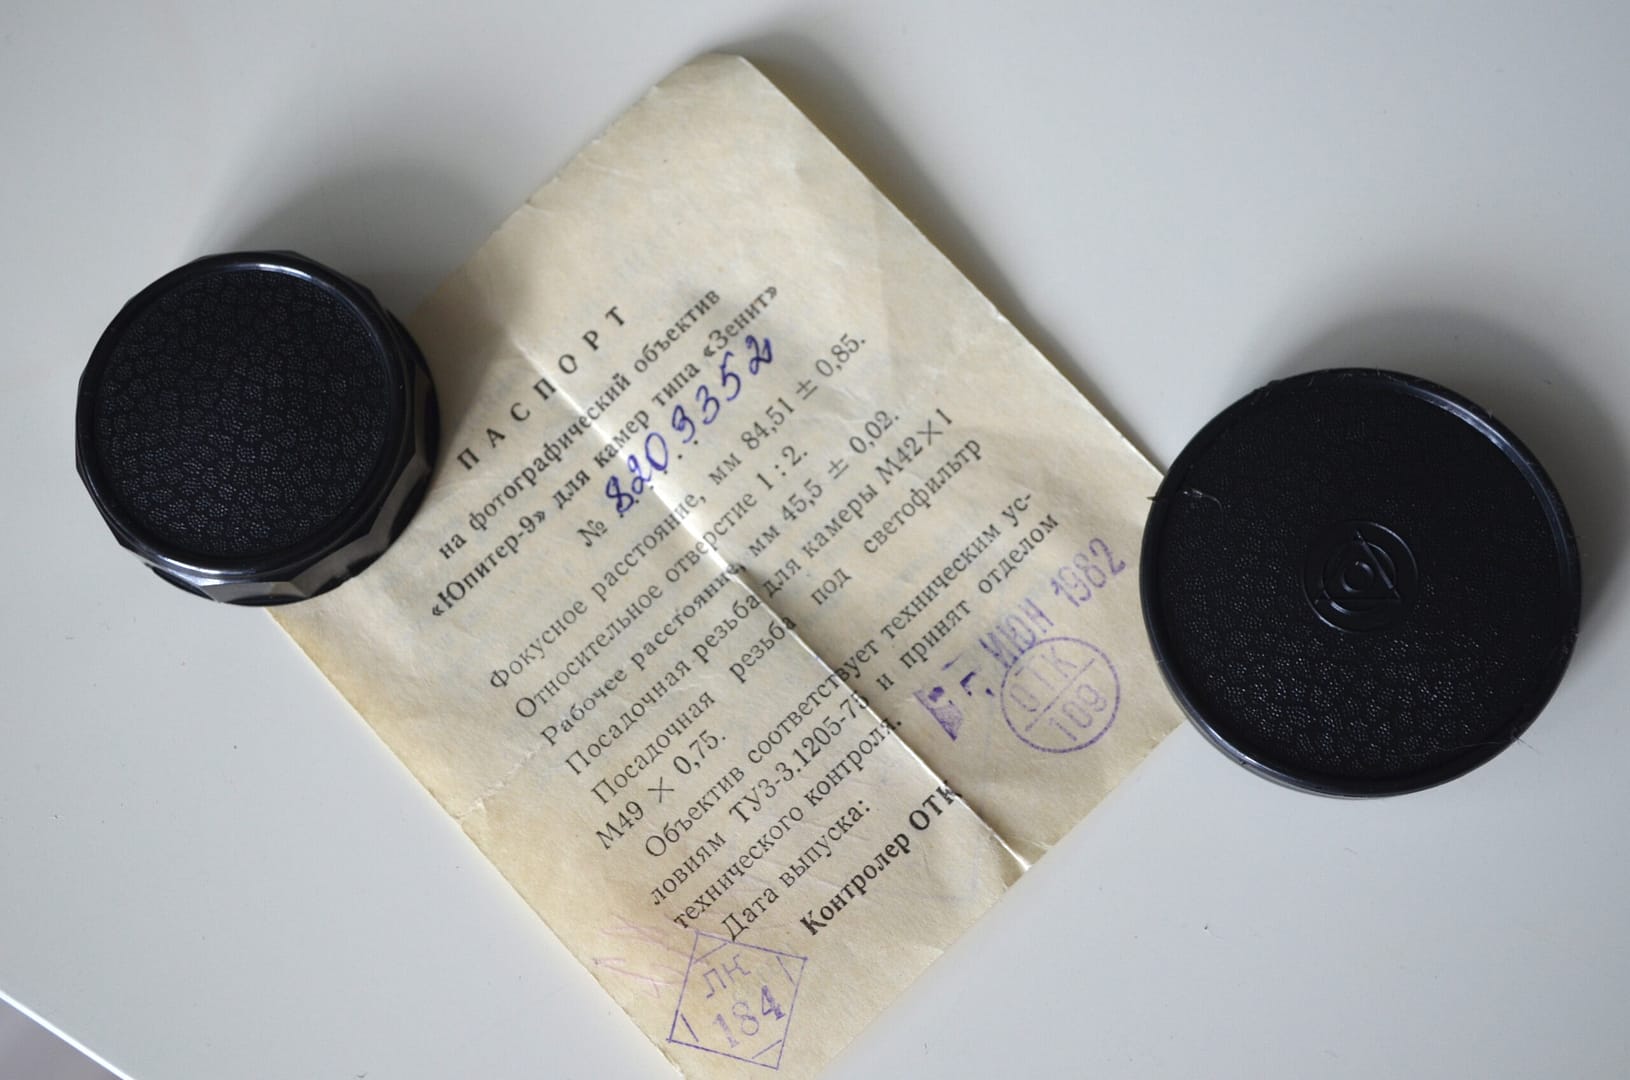 ПАСПОРТ
на фотографический объектив
«Юпитер-9» для камер типа «Зенит»
№ 8209352
Фокусное расстояние, мм 84,51 ± 0,85.
Относительное отверстие 1 : 2.
Рабочее расстояние, мм 45,5 ± 0,02.
Посадочная резьба для камеры М42×1
Посадочная резьба под светофильтр
М49 × 0,75.
Объектив соответствует техническим ус-
ловиям ТУ3-3.1205-75 и принят отделом
технического контроля.
Дата выпуска:
ИЮН 1982
Контролер ОТК
ОТК
109
ЛК
184